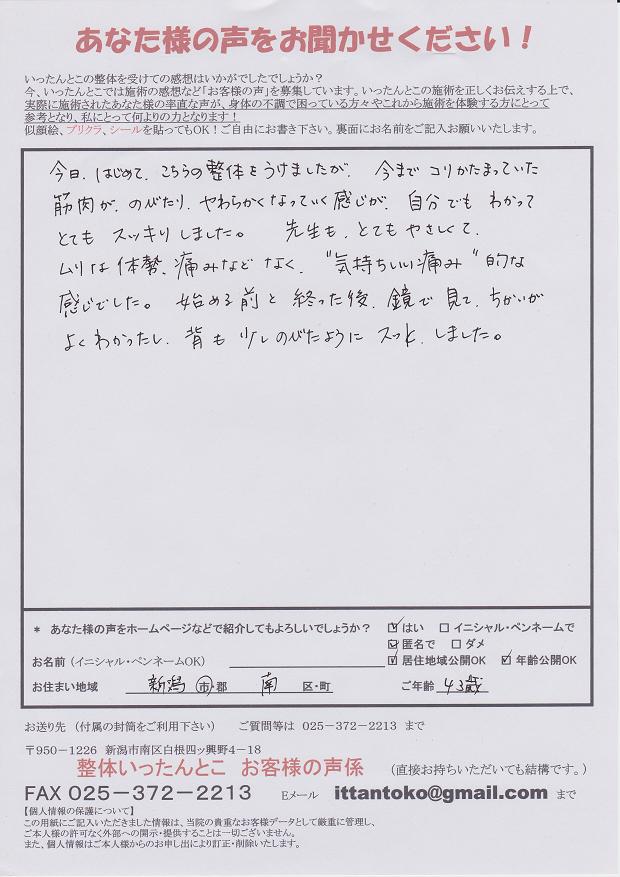 あなた様の声をお聞かせください！
いったんとこの整体を受けての感想はいかがでしたでしょうか？
今、いったんとこでは施術の感想など「お客様の声」を募集しています。いったんとこの施術を正しくお伝えする上で、
実際に施術されたあなた様の率直な声が、身体の不調で困っている方々やこれから施術を体験する方にとって
参考となり、私にとって何よりの力となります！
似顔絵、プリクラ、シールを貼ってもOK！ご自由にお書き下さい。裏面にお名前をご記入お願いいたします。
今日、はじめて、こちらの整体をうけましたが、今までコリかたまっていた
筋肉が、のびたり、やわらかくなっていく感じが、自分でもわかって
とてもスッキリしました。先生も、とてもやさしくて、
ムリな体勢、痛みなどなく、"気持ちいい痛み"的な
感じでした。始める前と終った後、鏡で見て、ちがいが
よくわかったし、背も少しのびたようにスッと、しました。
* あなた様の声をホームページなどで紹介してもよろしいでしょうか？ ☑はい □イニシャル・ペンネームで
☑匿名で □ダメ
お名前（イニシャル・ペンネームOK） ☑居住地域公開OK ☑年齢公開OK
お住まい地域 新潟 市・郡 南 区・町 ご年齢 43歳
お送り先（付属の封筒をご利用下さい） ご質問等は 025−372−2213 まで
〒950−1226 新潟市南区白根四ッ興野4−18
整体いったんとこ お客様の声係 （直接お持ちいただいても結構です。）
FAX 025−372−2213 Eメール ittantoko@gmail.com まで
【個人情報の保護について】
この用紙にご記入いただきました情報は、当院の貴重なお客様データとして厳重に管理し、
ご本人様の許可なく外部への開示・提供することは一切ございません。
また、個人情報はご本人様からのお申し出により訂正・削除いたします。